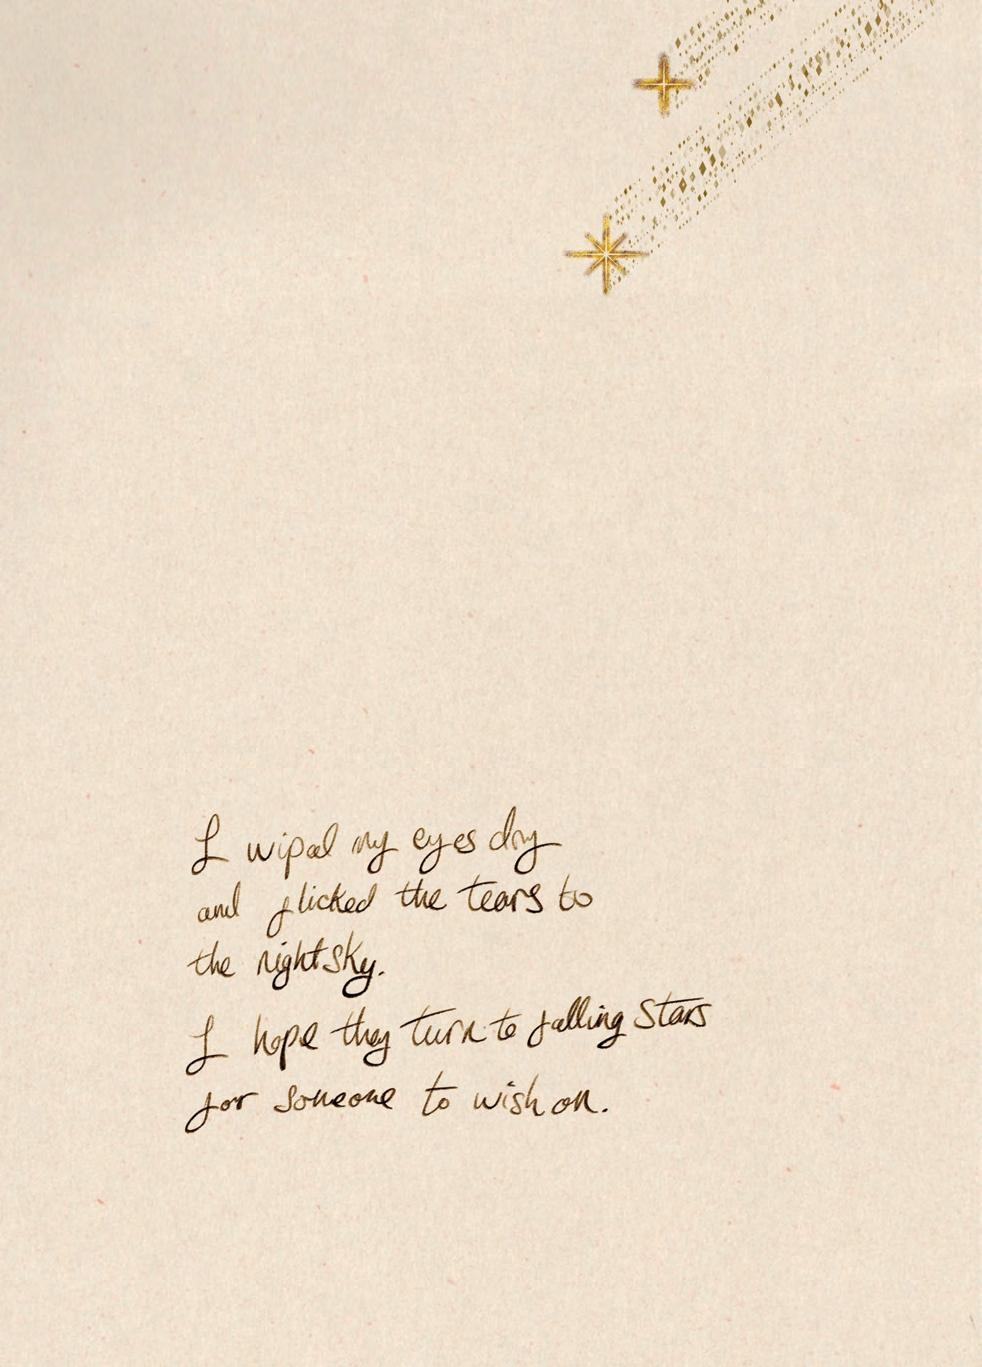 I wiped my eyes dry
and flicked the tears to
the night sky.
I hope they turn to falling stars
for someone to wish on.